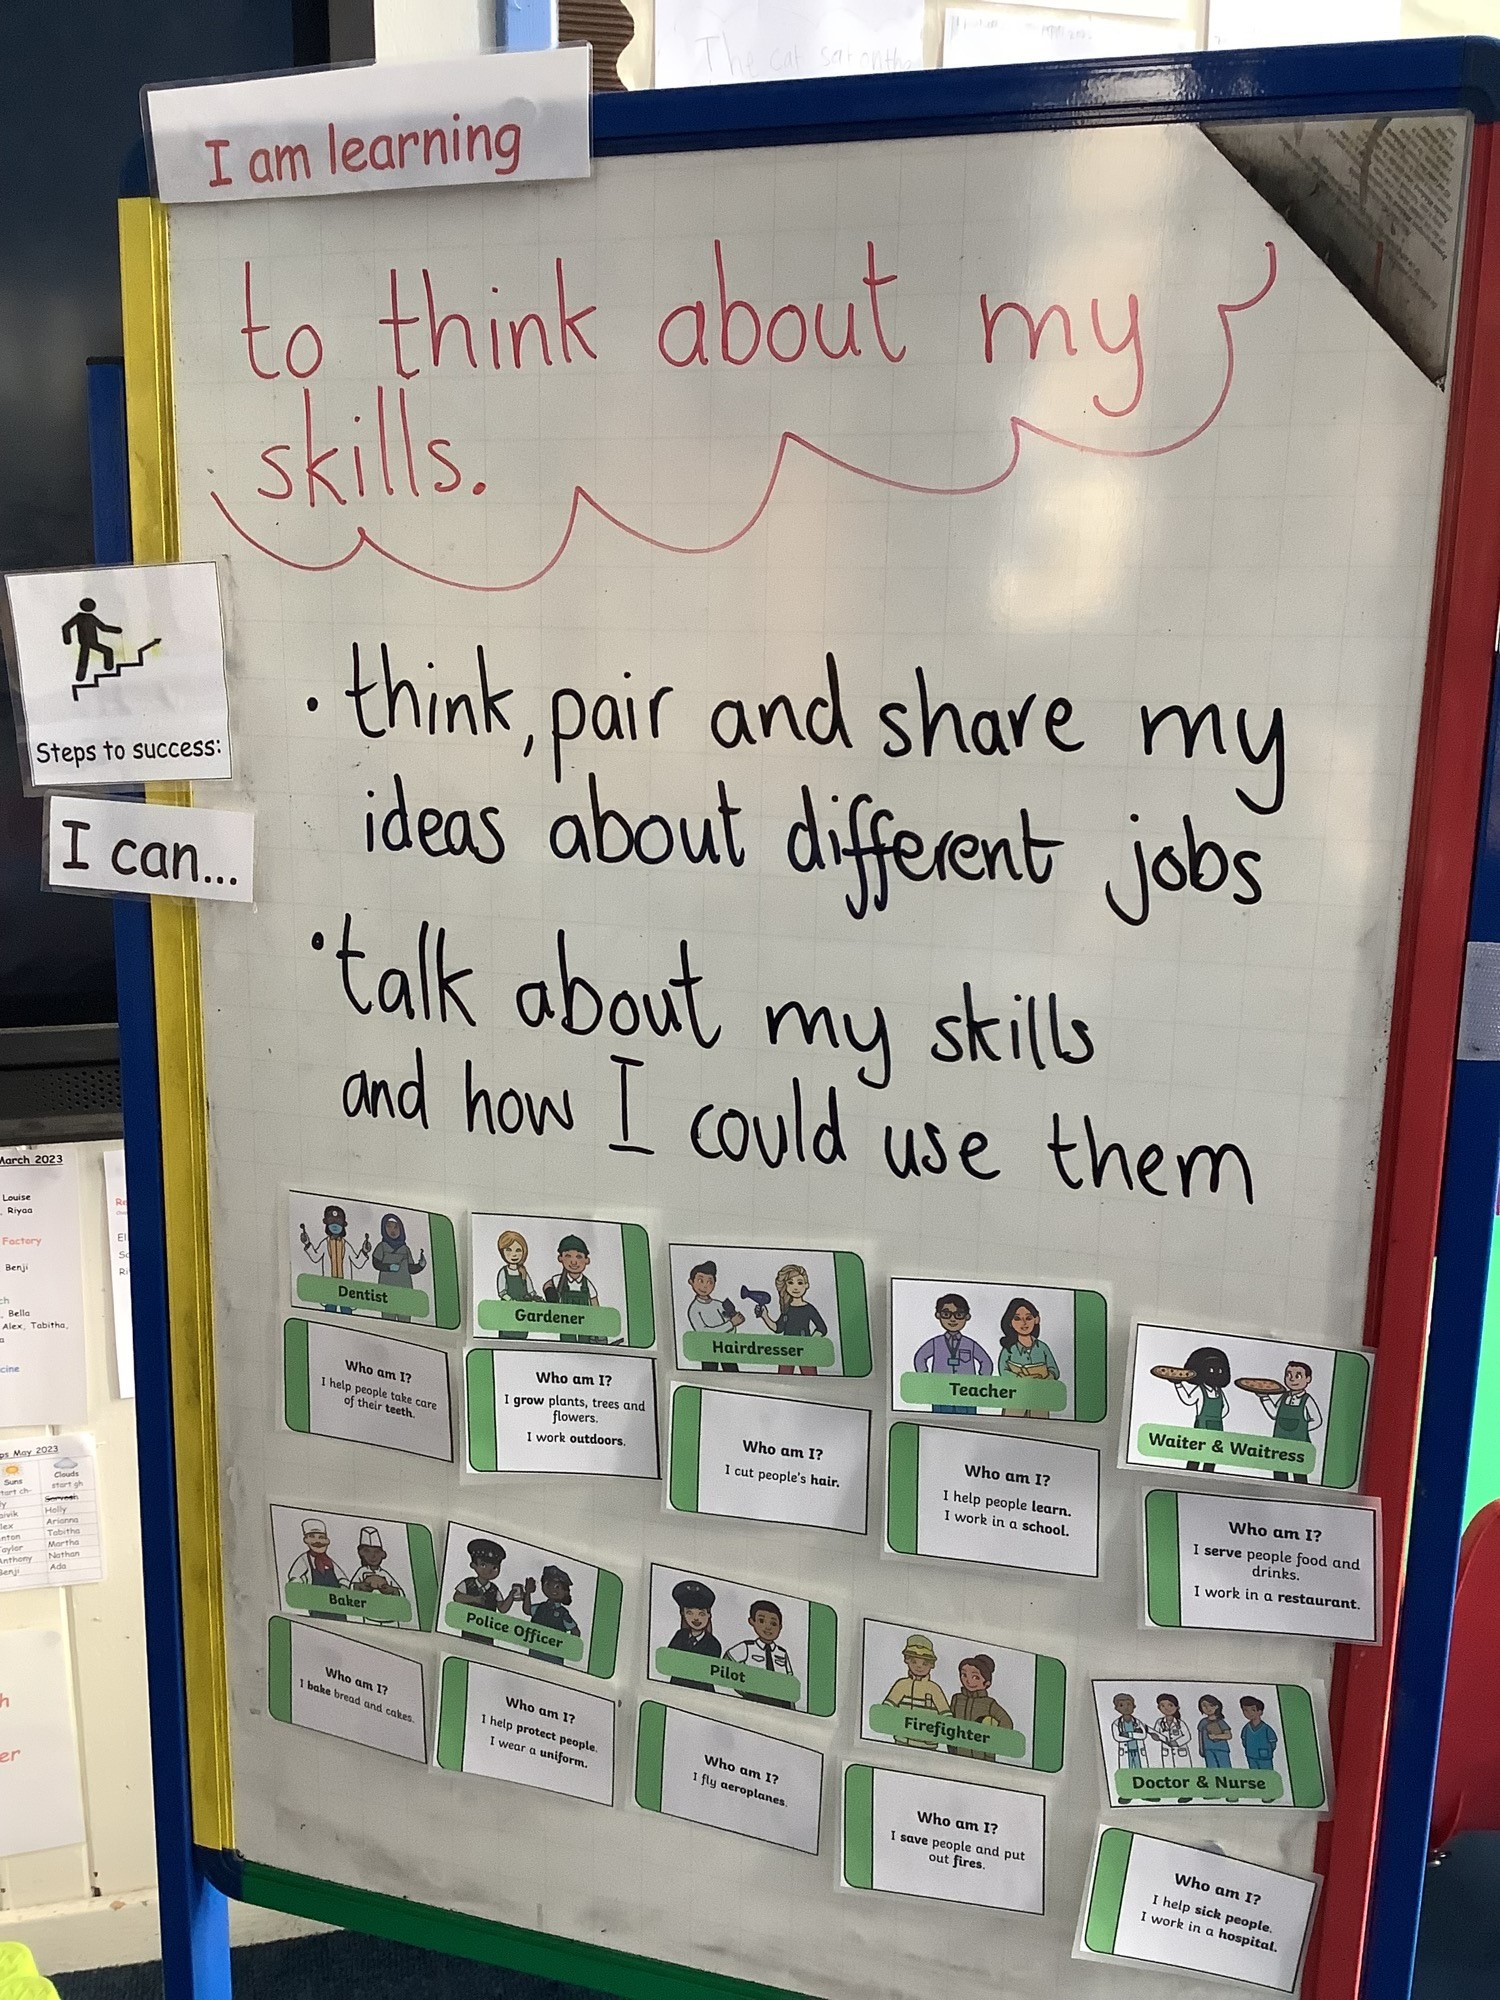 The cat sat on the
I am learning
to think about my
skills.
Steps to success:
I can...
• think, pair and share my
ideas about different jobs
• talk about my skills
and how I could use them
Dentist
Who am I?
I help people take care
of their teeth.
Gardener
Who am I?
I grow plants, trees and
flowers.
I work outdoors.
Hairdresser
Who am I?
I cut people's hair.
Teacher
Who am I?
I help people learn.
I work in a school.
Waiter & Waitress
Who am I?
I serve people food and
drinks.
I work in a restaurant.
Baker
Who am I?
I bake bread and cakes.
Police Officer
Who am I?
I help protect people.
I wear a uniform.
Pilot
Who am I?
I fly aeroplanes.
Firefighter
Who am I?
I save people and put
out fires.
Doctor & Nurse
Who am I?
I help sick people.
I work in a hospital.
March 2023
Louise
, Riyaa
Factory
Benji
, Bella
Alex, Tabitha,
May 2023
Suns
Clouds
start gh
Holly
Arianna
Tabitha
Martha
Anthony
Nathan
Benji
Ada